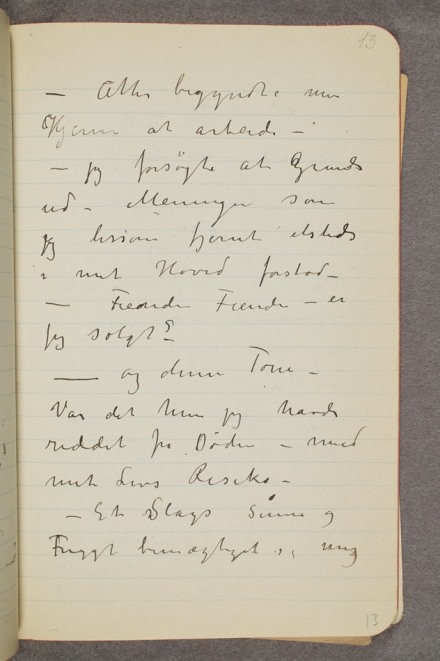 13
— Atter begyndte min
Hjerne at arbeide –
– jeg forsøgte at grunde
ud – Meninger som
jeg lissom fjernt etsteds
i mit Hoved forstod –
— Fiender Fiender – er
jeg solgt?
— og denne Tone –
Var det hun jeg havde
reddet fra Døden – med
mit Livs Risiko –
– Et Slags Sinne og
Frygt bemægtiget sig mig
13